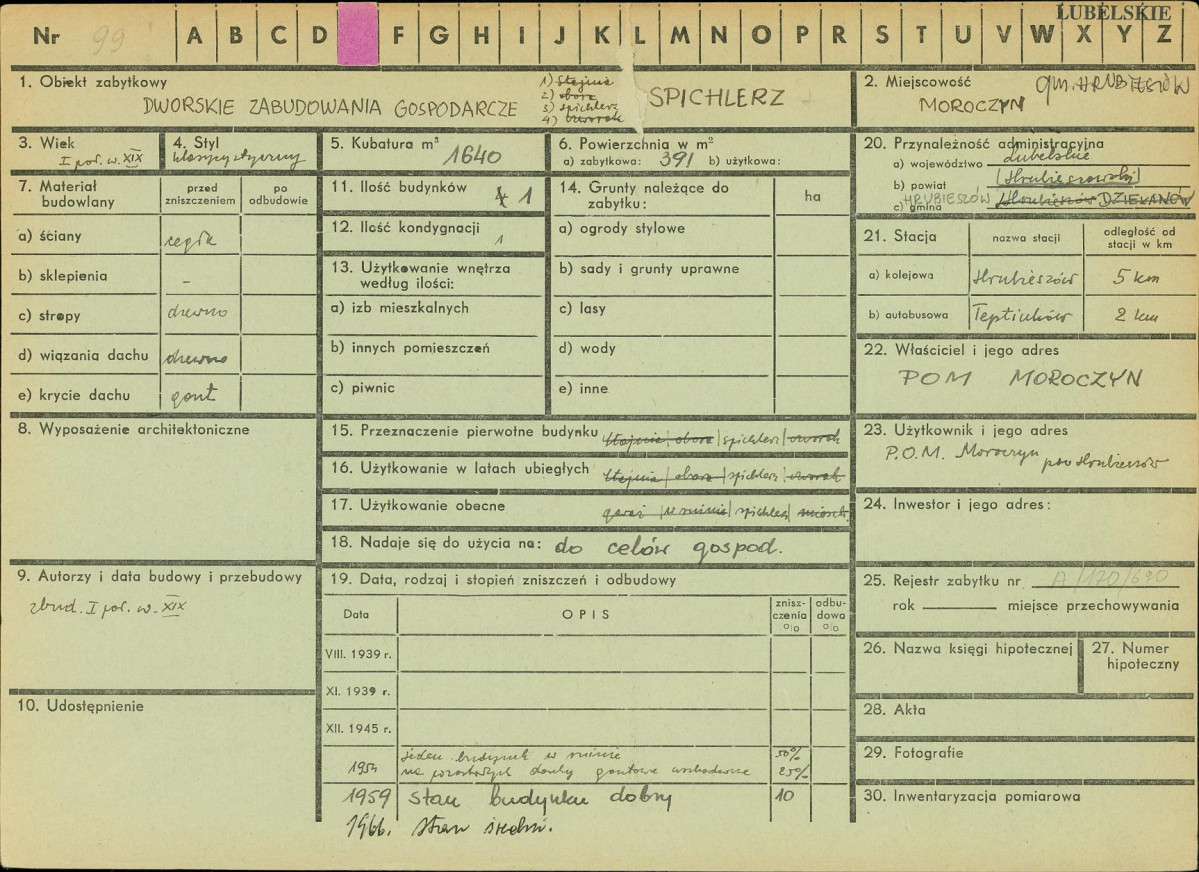 LUBELSKIE
Nr 99 A B C D F G H I J K L M N O P R S T U V W X Y Z
1. Obiekt zabytkowy
DWORSKIE ZABUDOWANIA GOSPODARCZE
1) stajnia
2) obora
3) spichlerz
4) czworak
SPICHLERZ
2. Miejscowość gm. HRUBIESZÓW
MOROCZYN
3. Wiek
I poł. w. XIX
4. Styl
klasycystyczny
5. Kubatura m³
1640
6. Powierzchnia w m²
a) zabytkowa: 391 b) użytkowa:
20. Przynależność administracyjna
a) województwo Lubelskie
b) powiat (Hrubieszowski)
c) gmina HRUBIESZÓW Hrubieszów DZIEKANÓW
7. Materiał budowlany
przed zniszczeniem
po odbudowie
a) ściany cegła
b) sklepienia –
c) stropy drewno
d) wiązania dachu drewno
e) krycie dachu gont
11. Ilość budynków 4 1
12. Ilość kondygnacji 1
13. Użytkowanie wnętrza według ilości:
a) izb mieszkalnych
b) innych pomieszczeń
c) piwnic
14. Grunty należące do zabytku:
ha
a) ogrody stylowe
b) sady i grunty uprawne
c) lasy
d) wody
e) inne
21. Stacja
nazwa stacji
odległość od stacji w km
a) kolejowa Hrubieszów 5 km
b) autobusowa Teptiuków 2 km
22. Właściciel i jego adres
POM MOROCZYN
8. Wyposażenie architektoniczne
15. Przeznaczenie pierwotne budynku stajnia | obora | spichlerz | czworak
16. Użytkowanie w latach ubiegłych stajnia | obora | spichlerz | czworak
17. Użytkowanie obecne garaż | w ruinie | spichlerz | mieszk.
18. Nadaje się do użycia na: do celów gospod.
23. Użytkownik i jego adres
P.O.M. Moroczyn pow Hrubieszów
24. Inwestor i jego adres:
9. Autorzy i data budowy i przebudowy
zbud. I poł. w. XIX
10. Udostępnienie
19. Data, rodzaj i stopień zniszczeń i odbudowy
Data
OPIS
zniszczenia %
odbudowa %
VIII. 1939 r.
XI. 1939 r.
XII. 1945 r.
1954 jeden budynek w ruinie 50%
na pozostałych dachy gontowe uszkodzone 25%
1959 stan budynku dobry 10
1966. Stan średni.
25. Rejestr zabytku nr A/170/690
rok miejsce przechowywania
26. Nazwa księgi hipotecznej
27. Numer hipoteczny
28. Akta
29. Fotografie
30. Inwentaryzacja pomiarowa